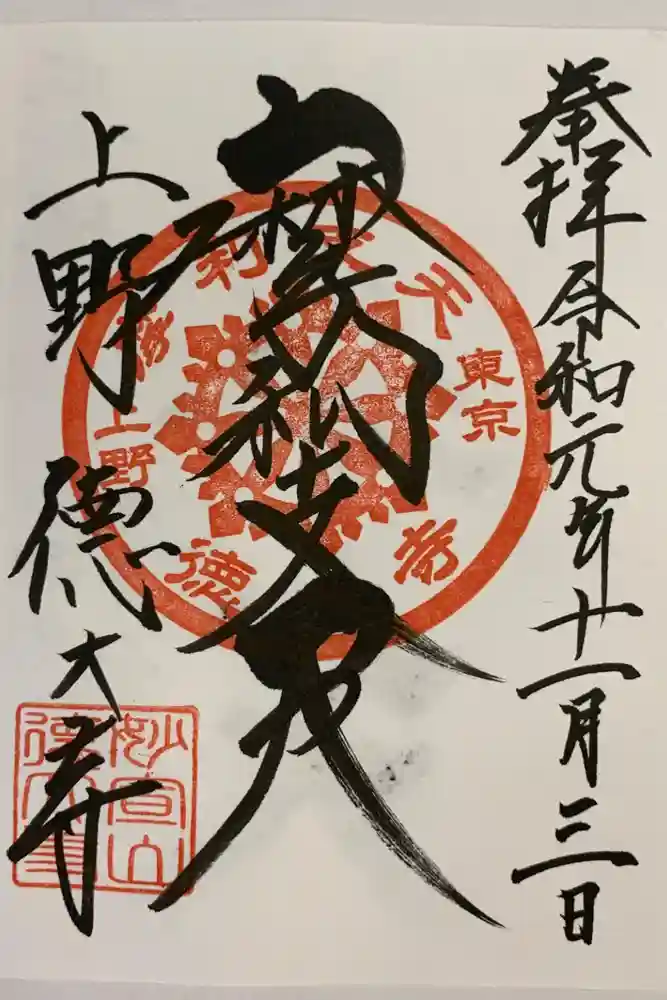 奉拝 令和元年十一月三日
摩利支天
上野 德大寺
摩利支天
東京
上野
德大寺
妙宣山
德大寺